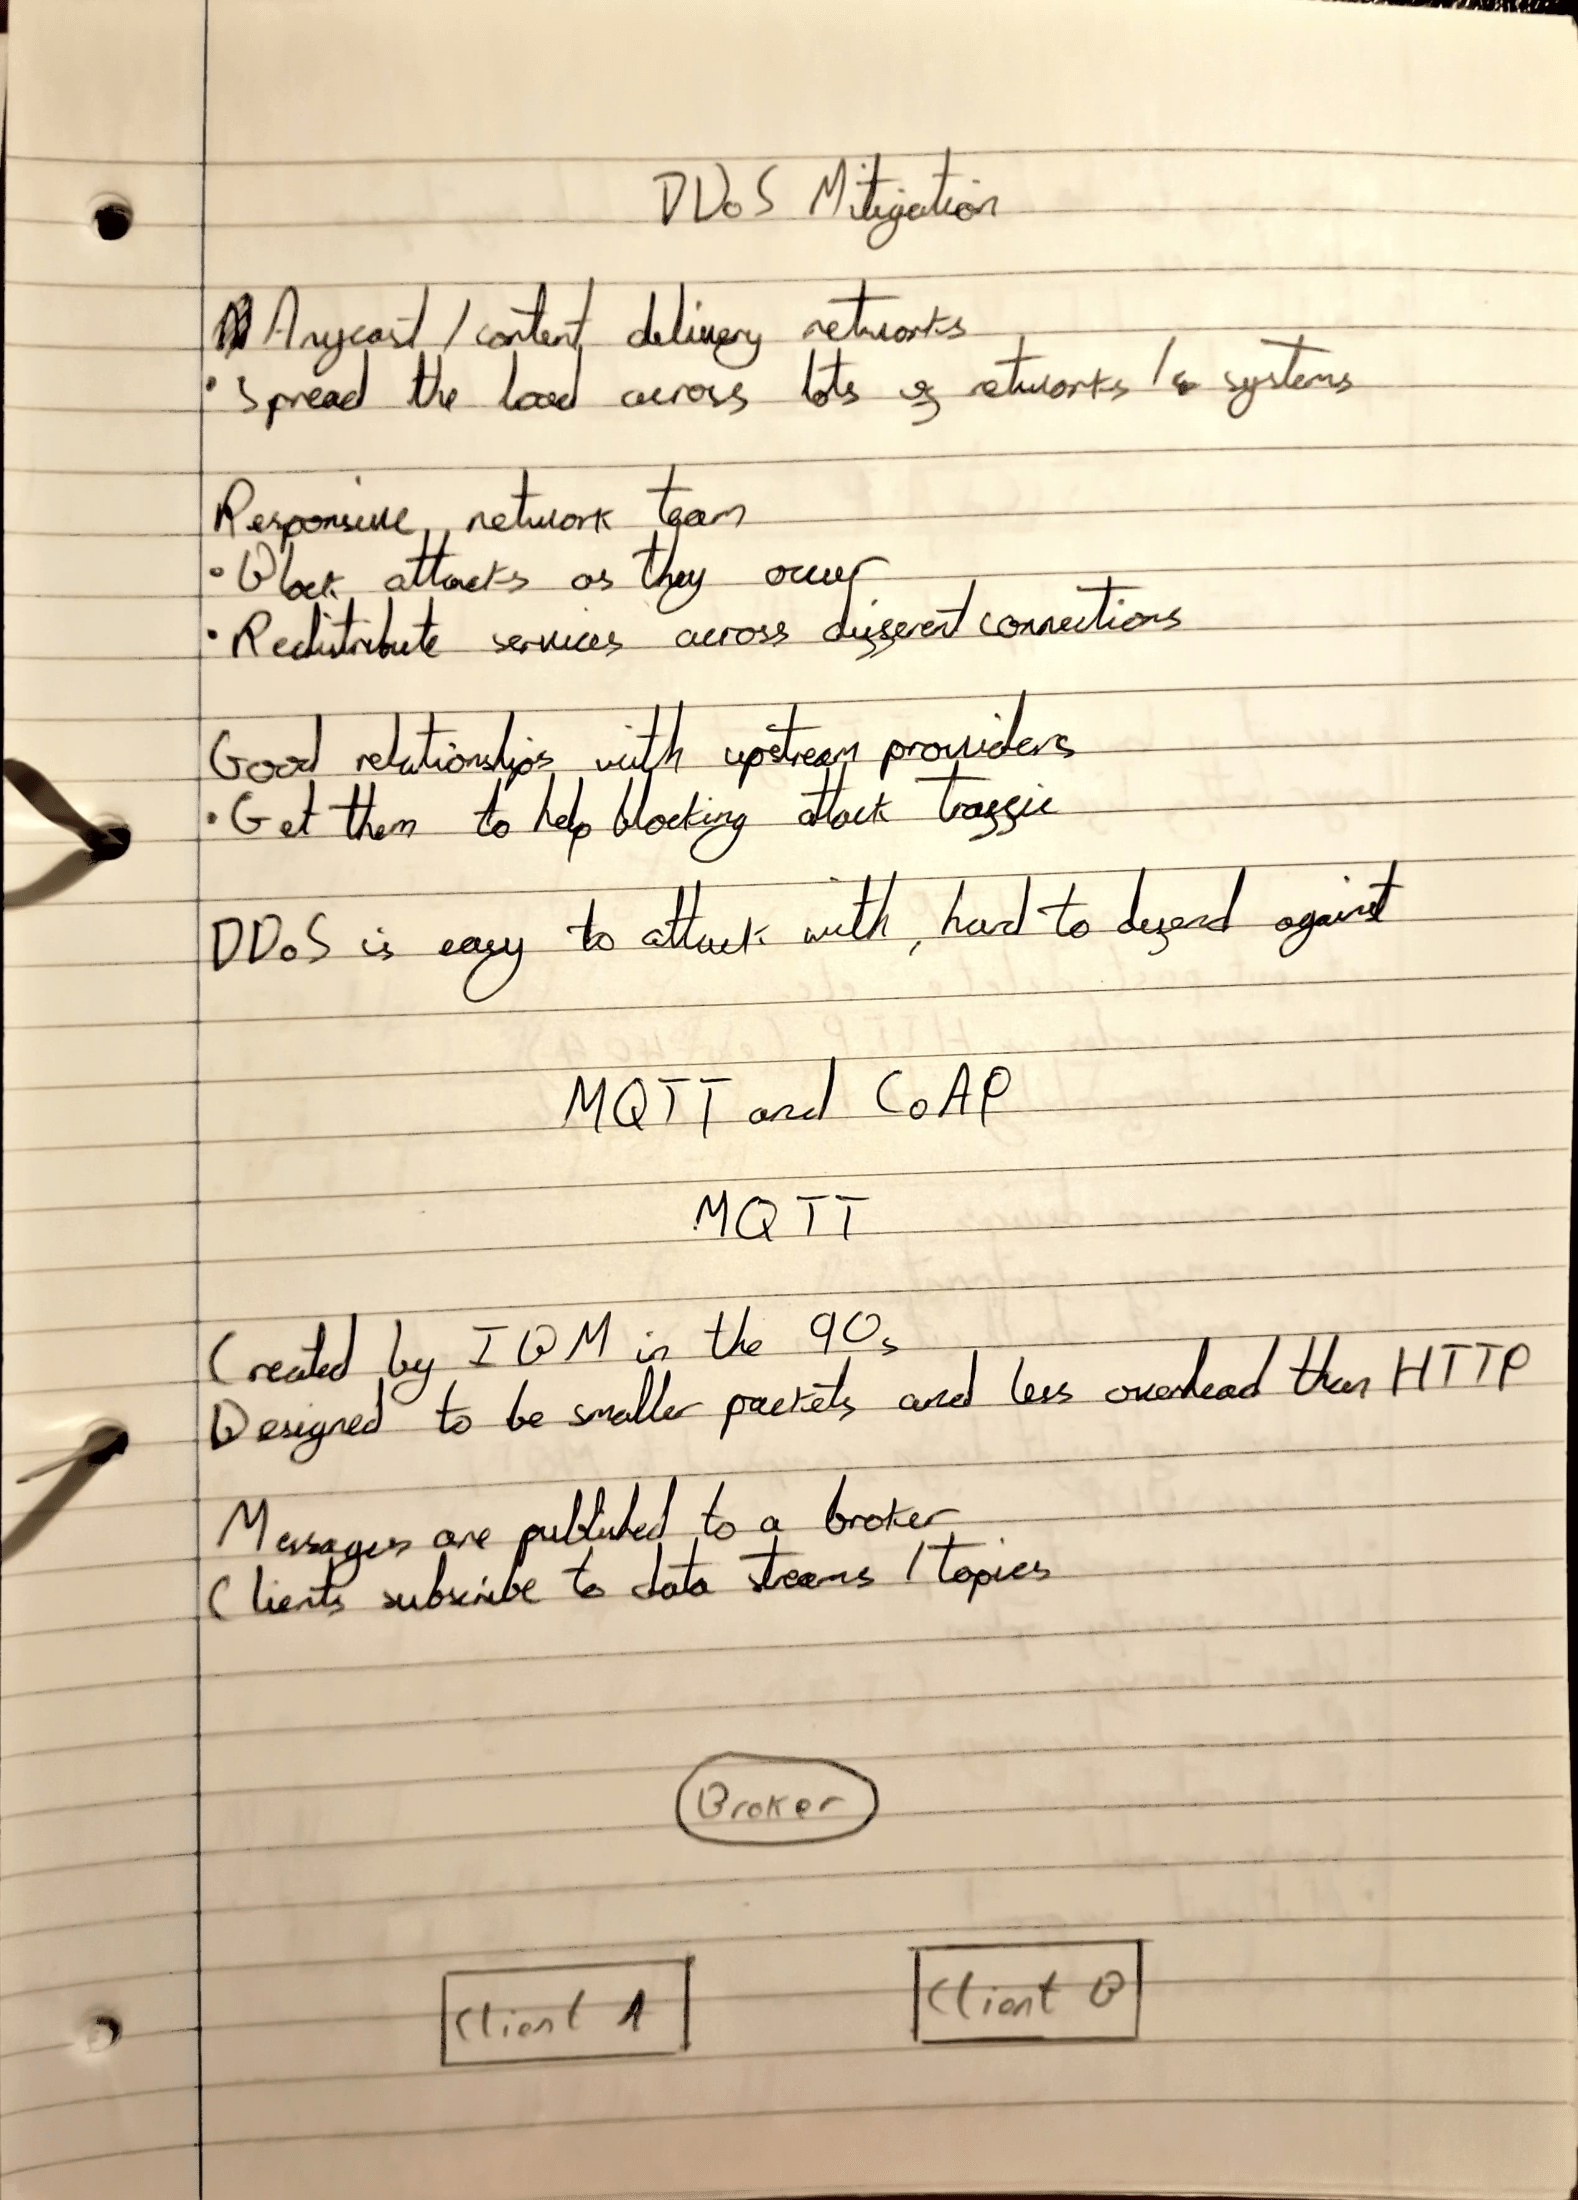 DDoS Mitigation
Anycast / content delivery networks
• Spread the load across lots of networks / systems
Responsive network team
• Block attacks as they occur
• Redistribute services across different connections
Good relationships with upstream providers
• Get them to help blocking attack traffic
DDoS is easy to attack with, hard to defend against
MQTT and CoAP
MQTT
Created by IBM in the 90s
Designed to be smaller packets and less overhead than HTTP
Messages are published to a broker
Clients subscribe to data streams / topics
Broker
Client A
Client B